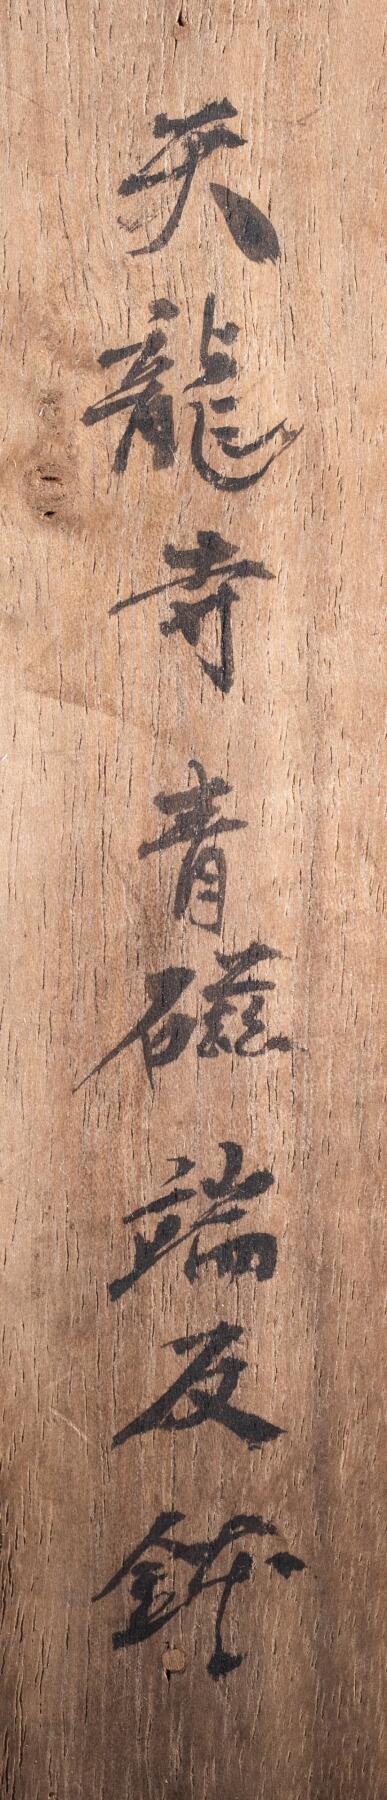 天龍寺青磁端反鉢